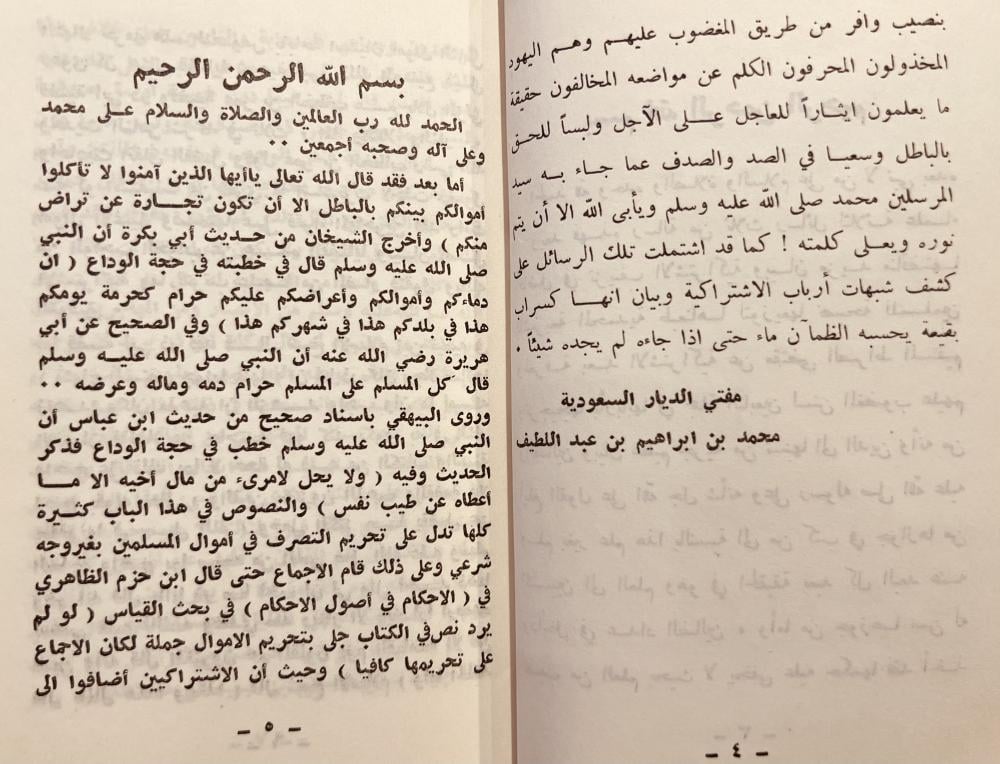 بنصيب وافر من طريق المغضوب عليهم وهم اليهود
المخذولون المحرفون الكلم عن مواضعه المخالفون حقيقة
ما يعلمون ايثاراً للعاجل على الآجل ولبساً للحق
بالباطل وسعيا في الصد والصدف عما جاء به سيد
المرسلين محمد صلى الله عليه وسلم ويأبى الله الا أن يتم
نوره ويعلى كلمته ! كما قد اشتملت تلك الرسائل على
كشف شبهات أرباب الاشتراكية وبيان انهـا كسراب
بقيعة يحسبه الظمآن ماء حتى اذا جاءه لم يجده شيئاً .
مفتي الديار السعودية
محمد بن ابراهيم بن عبد اللطيف
ـ ٤ ـ
بسم الله الرحمن الرحيم
الحمد لله رب العالمين والصلاة والسلام على محمد
وعلى آله وصحبه أجمعين ..
أما بعد فقد قال الله تعالى ياأيها الذين آمنوا لا تأكلوا
أموالكم بينكم بالباطل الا أن تكون تجارة عن تراض
منكم ) وأخرج الشيخان من حديث أبي بكرة أن النبي
صلى الله عليه وسلم قال في خطبته في حجة الوداع ( ان
دماءكم وأموالكم وأعراضكم عليكم حرام كحرمة يومكم
هذا في بلدكم هذا في شهركم هذا ) وفي الصحيح عن أبي
هريرة رضي الله عنه أن النبي صلى الله عليـه وسلم
قال كل المسلم على المسلم حرام دمه وماله وعرضه ..
وروى البيهقي باسناد صحيح من حديث ابن عباس أن
النبي صلى الله عليه وسلم خطب في حجة الوداع فذكر
الحديث وفيه ( ولا يحل لامرىء من مال أخيه الا مـا
أعطاه عن طيب نفس ) والنصوص في هذا الباب كثـيرة
كلها تدل على تحريم التصرف في أموال المسلمين بغيروجه
شرعي وعلى ذلك قام الاجماع حتى قال ابن حزم الظاهري
في ( الاحكام في أصول الاحكام ) في بحث القياس ( لو لم
يرد نص في الكتاب جلى بتحريم الاموال جملة لكان الاجماع
على تحريمها كافيا ) وحيث أن الاشتراكيين أضافوا الى
ـ ٥ ـ